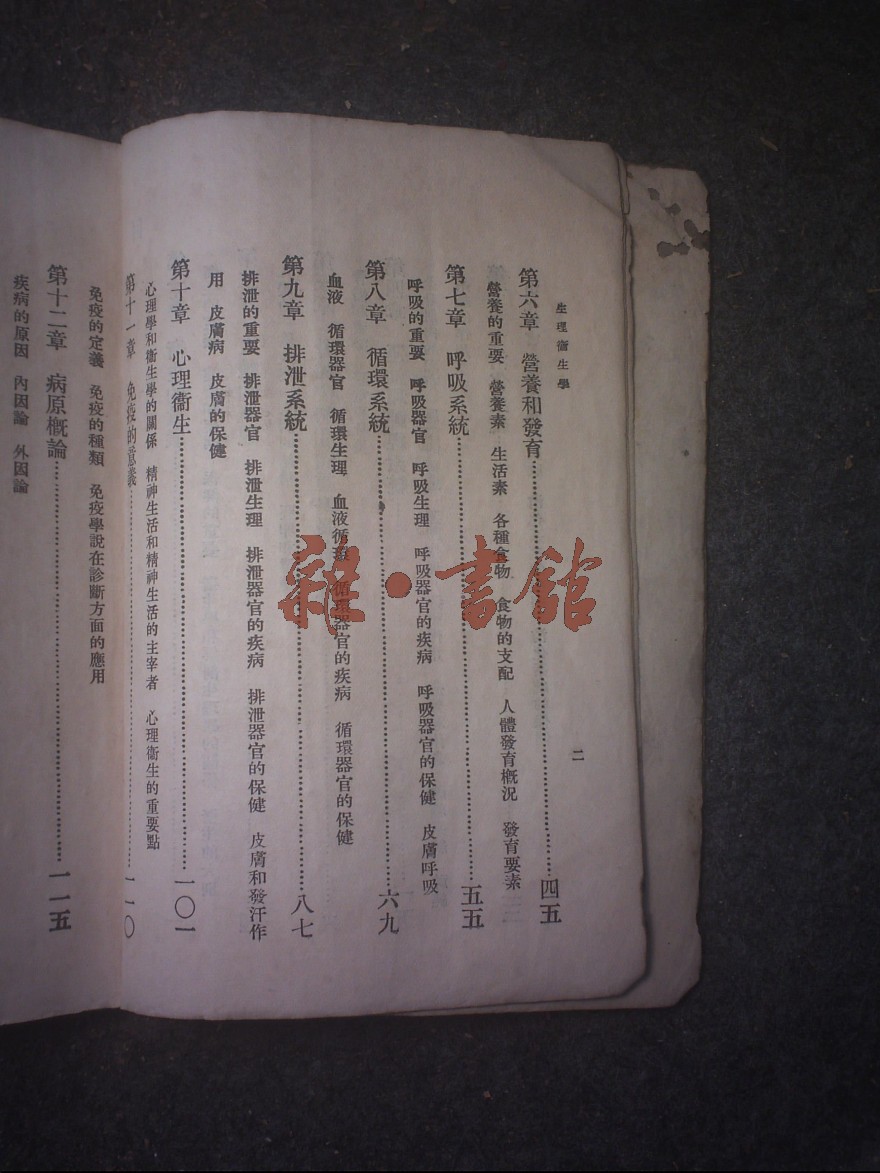 生理衞生學
二
第六章 營養和發育……四五
營養的重要 營養素 生活素 各種食物 食物的支配 人體發育槪況 發育要素
第七章 呼吸系統……五五
呼吸的重要 呼吸器官 呼吸生理 呼吸器官的疾病 呼吸器官的保健 皮膚呼吸
第八章 循環系統……六九
血液 循環器官 循環生理 血液循環 循環器官的疾病 循環器官的保健
第九章 排泄系統……八七
排泄的重要 排泄器官 排泄生理 排泄器官的疾病 排泄器官的保健 皮膚和發汗作
用 皮膚病 皮膚的保健
第十章 心理衞生……一〇一
心理學和衞生學的關係 精神生活和精神生活的主宰者 心理衞生的重要點
第十一章 免疫的意義……一一〇
免疫的定義 免疫的種類 免疫學說在診斷方面的應用
第十二章 病原槪論……一一五
疾病的原因 內因論 外因論
雜·書館